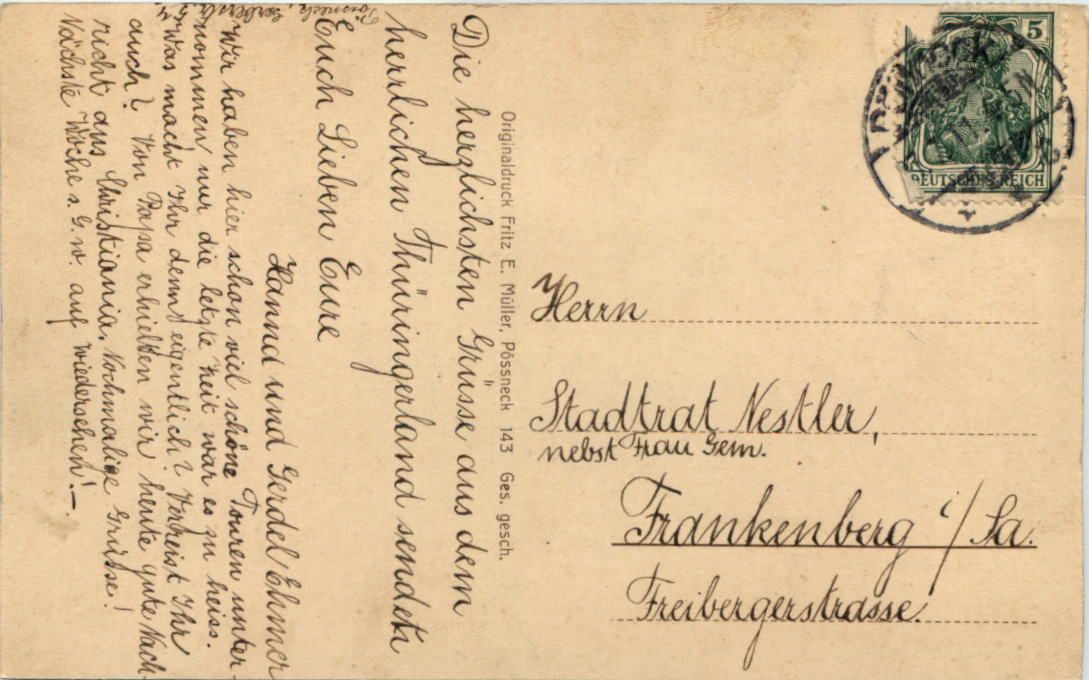 Pössneck, Gerberstr.
Die herzlichsten Grüsse aus dem
herrlichen Thüringerland sendet
Euch Lieben Eure
Hanna und Gerdel
Wir haben hier schon viel schöne Touren unter-
nommen, nur die letzte Zeit war es zu heiss.
Was macht Ihr denn eigentlich? Verreist Ihr
auch? Von Papa erhielten wir heute gute Nach-
richt aus Christiania. Nochmalige Grüsse!
Nächste Woche s. G. w. auf Wiedersehen! –
Originaldruck Fritz E. Müller, Pössneck 143 Ges. gesch.
5
DEUTSCHES REICH
Herrn
Stadtrat Nestler,
nebst Frau Gem.
Frankenberg i/Sa.
Freibergerstrasse.